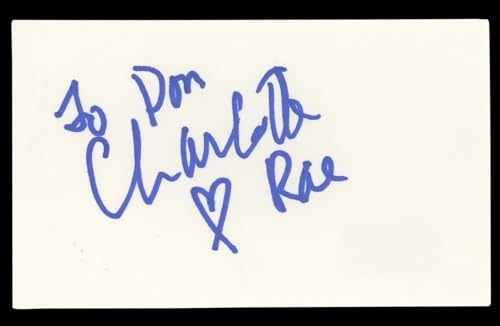 To Don
Charlotte
♡ Rae